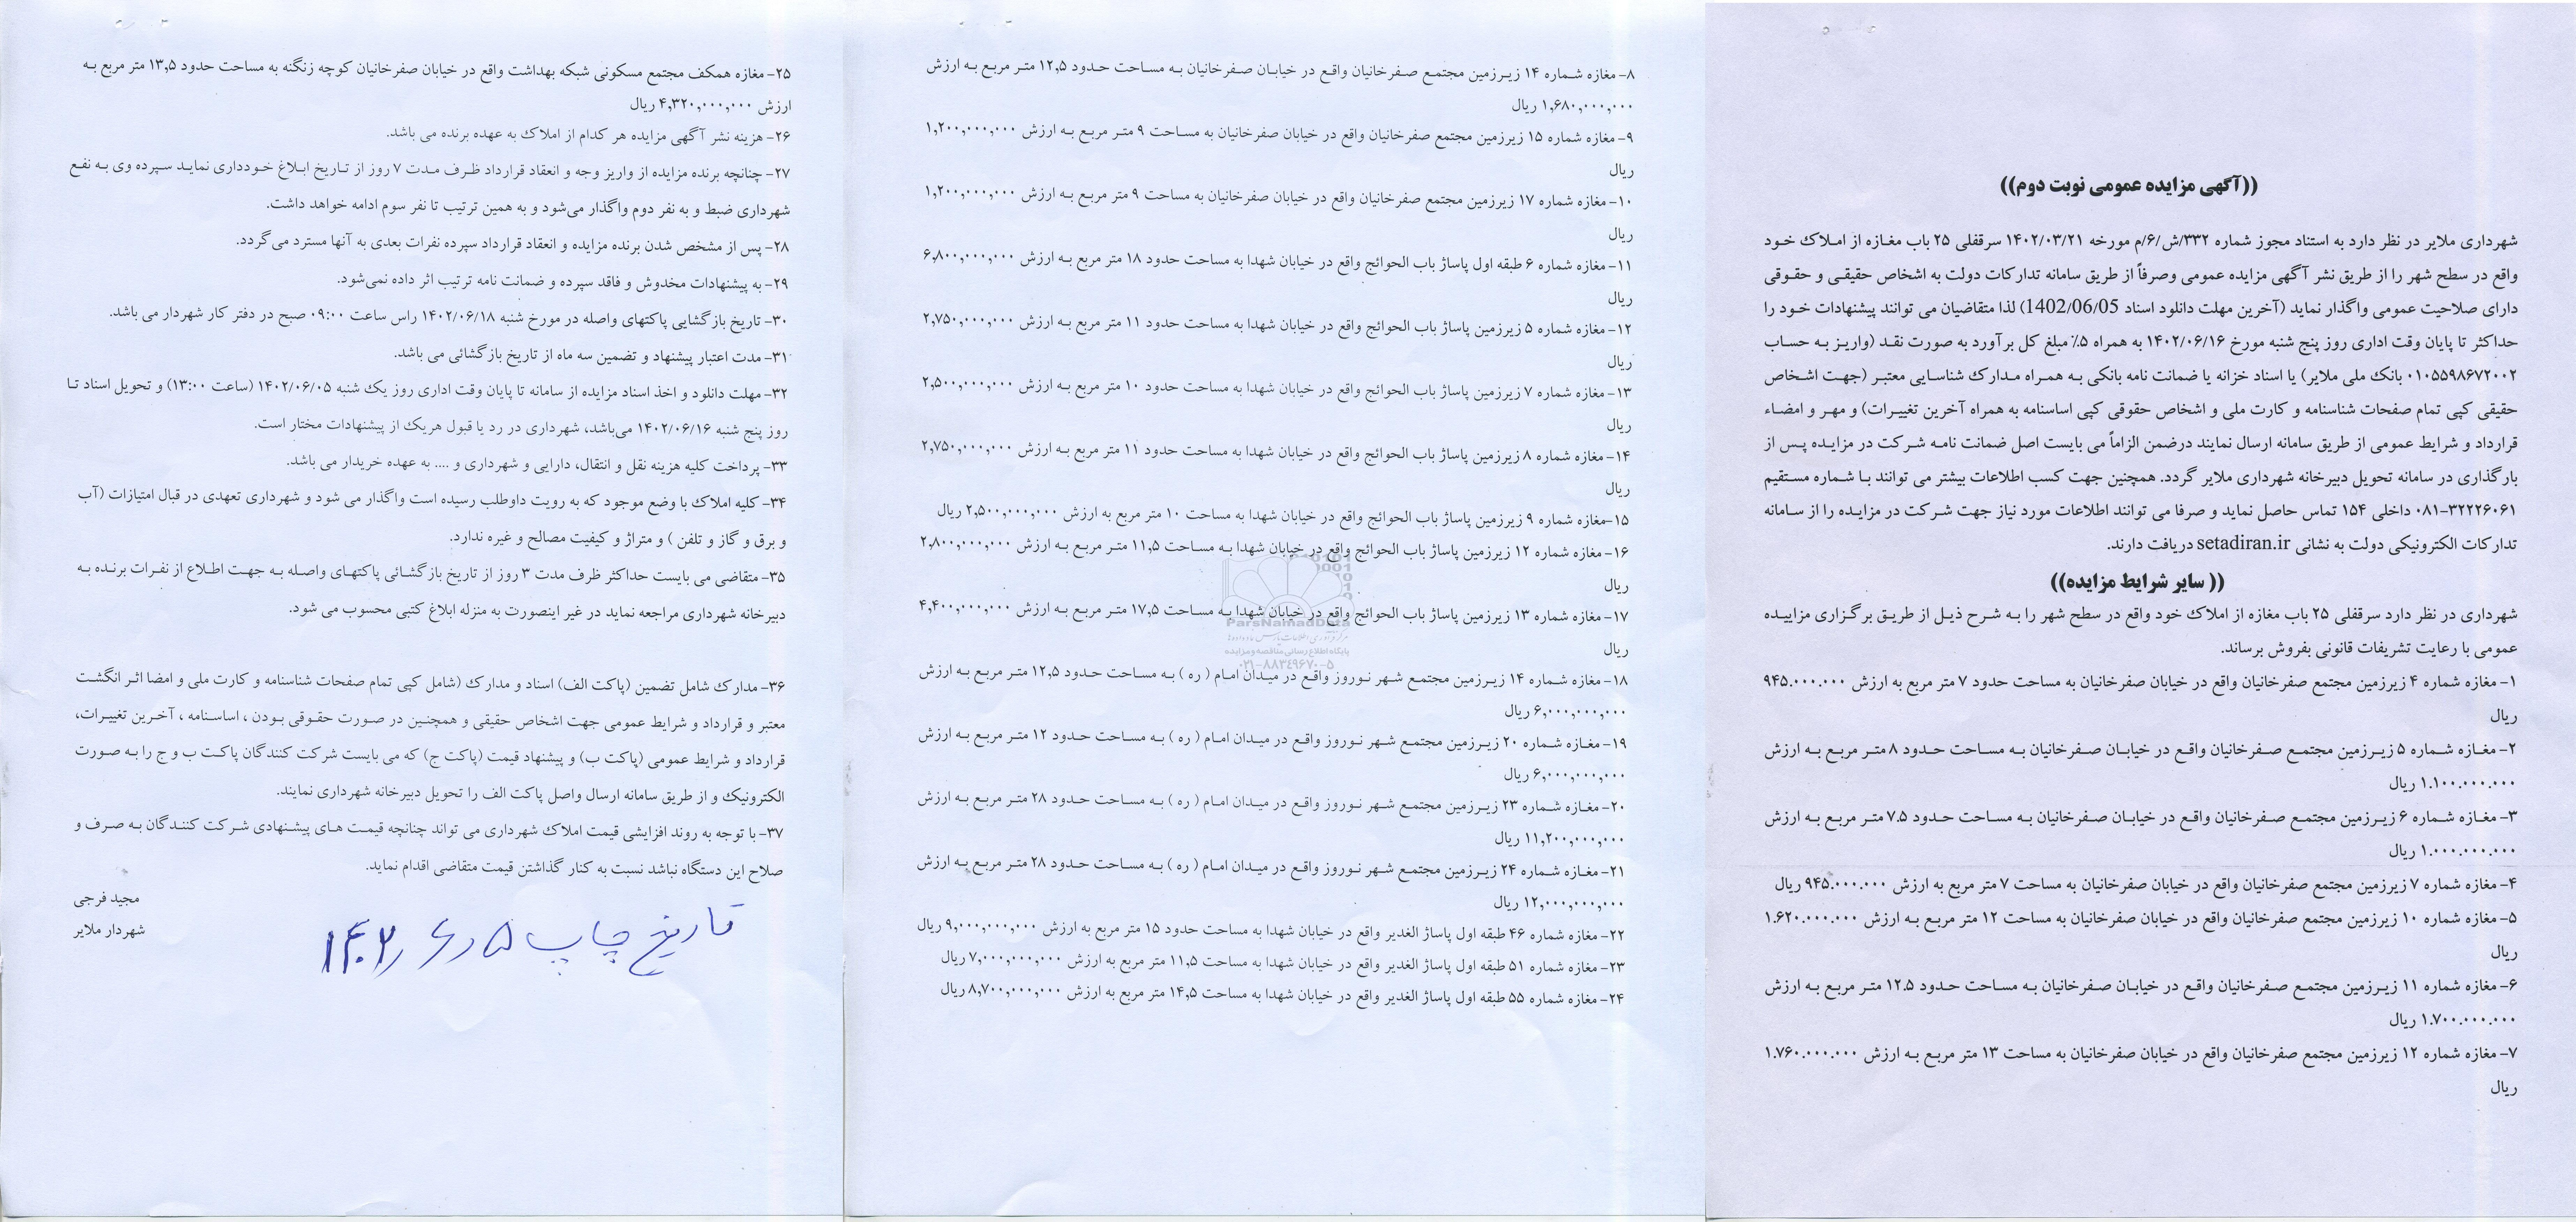 ((آگهی مزایده عمومی نوبت دوم))
شهرداری ملایر در نظر دارد به استناد مجوز شماره ۳۳۲/ش/۶/م مورخه ۱۴۰۲/۰۳/۲۱ سرقفلی ۲۵ باب مغازه از املاک خود
واقع در سطح شهر را از طریق نشر آگهی مزایده عمومی وصرفاً از طریق سامانه تدارکات دولت به اشخاص حقیقی و حقوقی
دارای صلاحیت عمومی واگذار نماید (آخرین مهلت دانلود اسناد 1402/06/05) لذا متقاضیان می توانند پیشنهادات خود را
حداکثر تا پایان وقت اداری روز پنج شنبه مورخ ۱۴۰۲/۰۶/۱۶ به همراه ۵٪ مبلغ کل برآورد به صورت نقد (واریز به حساب
۰۱۰۵۵۹۸۶۷۲۰۰۲ بانک ملی ملایر) یا اسناد خزانه یا ضمانت نامه بانکی به همراه مدارک شناسایی معتبر (جهت اشخاص
حقیقی کپی تمام صفحات شناسنامه و کارت ملی و اشخاص حقوقی کپی اساسنامه به همراه آخرین تغییرات) و مهر و امضاء
قرارداد و شرایط عمومی از طریق سامانه ارسال نمایند درضمن الزاماً می بایست اصل ضمانت نامه شرکت در مزایده پس از
بارگذاری در سامانه تحویل دبیرخانه شهرداری ملایر گردد. همچنین جهت کسب اطلاعات بیشتر می توانند با شماره مستقیم
۰۸۱-۳۲۲۲۶۰۶۱ داخلی ۱۵۴ تماس حاصل نماید و صرفا می توانند اطلاعات مورد نیاز جهت شرکت در مزایده را از سامانه
تدارکات الکترونیکی دولت به نشانی setadiran.ir دریافت دارند.
(( سایر شرایط مزایده))
شهرداری در نظر دارد سرقفلی ۲۵ باب مغازه از املاک خود واقع در سطح شهر را به شرح ذیل از طریق برگزاری مزاییده
عمومی با رعایت تشریفات قانونی بفروش برساند.
۱- مغازه شماره ۴ زیرزمین مجتمع صفرخانیان واقع در خیابان صفرخانیان به مساحت حدود ۷ متر مربع به ارزش ۹۴۵.۰۰۰.۰۰۰
ریال
۲- مغازه شماره ۵ زیرزمین مجتمع صفرخانیان واقع در خیابان صفرخانیان به مساحت حدود ۸ متر مربع به ارزش
۱.۱۰۰.۰۰۰.۰۰۰ ریال
۳- مغازه شماره ۶ زیرزمین مجتمع صفرخانیان واقع در خیابان صفرخانیان به مساحت حدود ۷.۵ متر مربع به ارزش
۱.۰۰۰.۰۰۰.۰۰۰ ریال
۴- مغازه شماره ۷ زیرزمین مجتمع صفرخانیان واقع در خیابان صفرخانیان به مساحت ۷ متر مربع به ارزش ۹۴۵.۰۰۰.۰۰۰ ریال
۵- مغازه شماره ۱۰ زیرزمین مجتمع صفرخانیان واقع در خیابان صفرخانیان به مساحت ۱۲ متر مربع به ارزش ۱.۶۲۰.۰۰۰.۰۰۰
ریال
۶- مغازه شماره ۱۱ زیرزمین مجتمع صفرخانیان واقع در خیابان صفرخانیان به مساحت حدود ۱۲.۵ متر مربع به ارزش
۱.۷۰۰.۰۰۰.۰۰۰ ریال
۷- مغازه شماره ۱۲ زیرزمین مجتمع صفرخانیان واقع در خیابان صفرخانیان به مساحت ۱۳ متر مربع به ارزش ۱.۷۶۰.۰۰۰.۰۰۰
ریال
۸- مغازه شماره ۱۴ زیرزمین مجتمع صفرخانیان واقع در خیابان صفرخانیان به مساحت حدود ۱۲,۵ متر مربع به ارزش
۱,۶۸۰,۰۰۰,۰۰۰ ریال
۹- مغازه شماره ۱۵ زیرزمین مجتمع صفرخانیان واقع در خیابان صفرخانیان به مساحت ۹ متر مربع به ارزش ۱,۲۰۰,۰۰۰,۰۰۰
ریال
۱۰- مغازه شماره ۱۷ زیرزمین مجتمع صفرخانیان واقع در خیابان صفرخانیان به مساحت ۹ متر مربع به ارزش ۱,۲۰۰,۰۰۰,۰۰۰
ریال
۱۱- مغازه شماره ۶ طبقه اول پاساژ باب الحوائج واقع در خیابان شهدا به مساحت حدود ۱۸ متر مربع به ارزش ۶,۸۰۰,۰۰۰,۰۰۰
ریال
۱۲- مغازه شماره ۵ زیرزمین پاساژ باب الحوائج واقع در خیابان شهدا به مساحت حدود ۱۱ متر مربع به ارزش ۲,۷۵۰,۰۰۰,۰۰۰
ریال
۱۳- مغازه شماره ۷ زیرزمین پاساژ باب الحوائج واقع در خیابان شهدا به مساحت حدود ۱۰ متر مربع به ارزش ۲,۵۰۰,۰۰۰,۰۰۰
ریال
۱۴- مغازه شماره ۸ زیرزمین پاساژ باب الحوائج واقع در خیابان شهدا به مساحت حدود ۱۱ متر مربع به ارزش ۲,۷۵۰,۰۰۰,۰۰۰
ریال
۱۵-مغازه شماره ۹ زیرزمین پاساژ باب الحوائج واقع در خیابان شهدا به مساحت ۱۰ متر مربع به ارزش ۲,۵۰۰,۰۰۰,۰۰۰ ریال
۱۶- مغازه شماره ۱۲ زیرزمین پاساژ باب الحوائج واقع در خیابان شهدا به مساحت ۱۱,۵ متر مربع به ارزش ۲,۸۰۰,۰۰۰,۰۰۰
ریال
۱۷- مغازه شماره ۱۳ زیرزمین پاساژ باب الحوائج واقع در خیابان شهدا به مساحت ۱۷,۵ متر مربع به ارزش ۴,۴۰۰,۰۰۰,۰۰۰
ریال
ParsNamadData
مرکز فرآوری اطلاعات پارس نماد داده ها
پایگاه اطلاع رسانی مناقصه و مزایده
۰۲۱-۸۸۳۴۹۶۷۰-۵
۱۸- مغازه شماره ۱۴ زیرزمین مجتمع شهر نوروز واقع در میدان امام ( ره ) به مساحت حدود ۱۲,۵ متر مربع به ارزش
۶,۰۰۰,۰۰۰,۰۰۰ ریال
۱۹- مغازه شماره ۲۰ زیرزمین مجتمع شهر نوروز واقع در میدان امام ( ره ) به مساحت حدود ۱۲ متر مربع به ارزش
۶,۰۰۰,۰۰۰,۰۰۰ ریال
۲۰- مغازه شماره ۲۳ زیرزمین مجتمع شهر نوروز واقع در میدان امام ( ره ) به مساحت حدود ۲۸ متر مربع به ارزش
۱۱,۲۰۰,۰۰۰,۰۰۰ ریال
۲۱- مغازه شماره ۲۴ زیرزمین مجتمع شهر نوروز واقع در میدان امام ( ره ) به مساحت حدود ۲۸ متر مربع به ارزش
۱۲,۰۰۰,۰۰۰,۰۰۰ ریال
۲۲- مغازه شماره ۴۶ طبقه اول پاساژ الغدیر واقع در خیابان شهدا به مساحت حدود ۱۵ متر مربع به ارزش ۹,۰۰۰,۰۰۰,۰۰۰ ریال
۲۳- مغازه شماره ۵۱ طبقه اول پاساژ الغدیر واقع در خیابان شهدا به مساحت ۱۱,۵ متر مربع به ارزش ۷,۰۰۰,۰۰۰,۰۰۰ ریال
۲۴- مغازه شماره ۵۵ طبقه اول پاساژ الغدیر واقع در خیابان شهدا به مساحت ۱۴,۵ متر مربع به ارزش ۸,۷۰۰,۰۰۰,۰۰۰ ریال
۲۵- مغازه همکف مجتمع مسکونی شبکه بهداشت واقع در خیابان صفرخانیان کوچه زنگنه به مساحت حدود ۱۳,۵ متر مربع به
ارزش ۴,۳۲۰,۰۰۰,۰۰۰ ریال
۲۶- هزینه نشر آگهی مزایده هر کدام از املاک به عهده برنده می باشد.
۲۷- چنانچه برنده مزایده از واریز وجه و انعقاد قرارداد ظرف مدت ۷ روز از تاریخ ابلاغ خودداری نماید سپرده وی به نفع
شهرداری ضبط و به نفر دوم واگذار می‌شود و به همین ترتیب تا نفر سوم ادامه خواهد داشت.
۲۸- پس از مشخص شدن برنده مزایده و انعقاد قرارداد سپرده نفرات بعدی به آنها مسترد می‌گردد.
۲۹- به پیشنهادات مخدوش و فاقد سپرده و ضمانت نامه ترتیب اثر داده نمی‌شود.
۳۰- تاریخ بازگشایی پاکتهای واصله در مورخ شنبه ۱۴۰۲/۰۶/۱۸ راس ساعت ۰۹:۰۰ صبح در دفتر کار شهردار می باشد.
۳۱- مدت اعتبار پیشنهاد و تضمین سه ماه از تاریخ بازگشائی می باشد.
۳۲- مهلت دانلود و اخذ اسناد مزایده از سامانه تا پایان وقت اداری روز یک شنبه ۱۴۰۲/۰۶/۰۵ (ساعت ۱۳:۰۰) و تحویل اسناد تا
روز پنج شنبه ۱۴۰۲/۰۶/۱۶ می‌باشد، شهرداری در رد یا قبول هریک از پیشنهادات مختار است.
۳۳- پرداخت کلیه هزینه نقل و انتقال، دارایی و شهرداری و .... به عهده خریدار می باشد.
۳۴- کلیه املاک با وضع موجود که به رویت داوطلب رسیده است واگذار می شود و شهرداری تعهدی در قبال امتیازات (آب
و برق و گاز و تلفن ) و متراژ و کیفیت مصالح و غیره ندارد.
۳۵- متقاضی می بایست حداکثر ظرف مدت ۳ روز از تاریخ بازگشائی پاکتهای واصله به جهت اطلاع از نفرات برنده به
دبیرخانه شهرداری مراجعه نماید در غیر اینصورت به منزله ابلاغ کتبی محسوب می شود.
۳۶- مدارک شامل تضمین (پاکت الف) اسناد و مدارک (شامل کپی تمام صفحات شناسنامه و کارت ملی و امضا اثر انگشت
معتبر و قرارداد و شرایط عمومی جهت اشخاص حقیقی و همچنین در صورت حقوقی بودن ، اساسنامه ، آخرین تغییرات،
قرارداد و شرایط عمومی (پاکت ب) و پیشنهاد قیمت (پاکت ج) که می بایست شرکت کنندگان پاکت ب و ج را به صورت
الکترونیک و از طریق سامانه ارسال واصل پاکت الف را تحویل دبیرخانه شهرداری نمایند.
۳۷- با توجه به روند افزایشی قیمت املاک شهرداری می تواند چنانچه قیمت های پیشنهادی شرکت کنندگان به صرف و
صلاح این دستگاه نباشد نسبت به کنار گذاشتن قیمت متقاضی اقدام نماید.
مجید فرجی
شهردار ملایر
تاریخ چاپ ۵ر۶ر۱۴۰۲